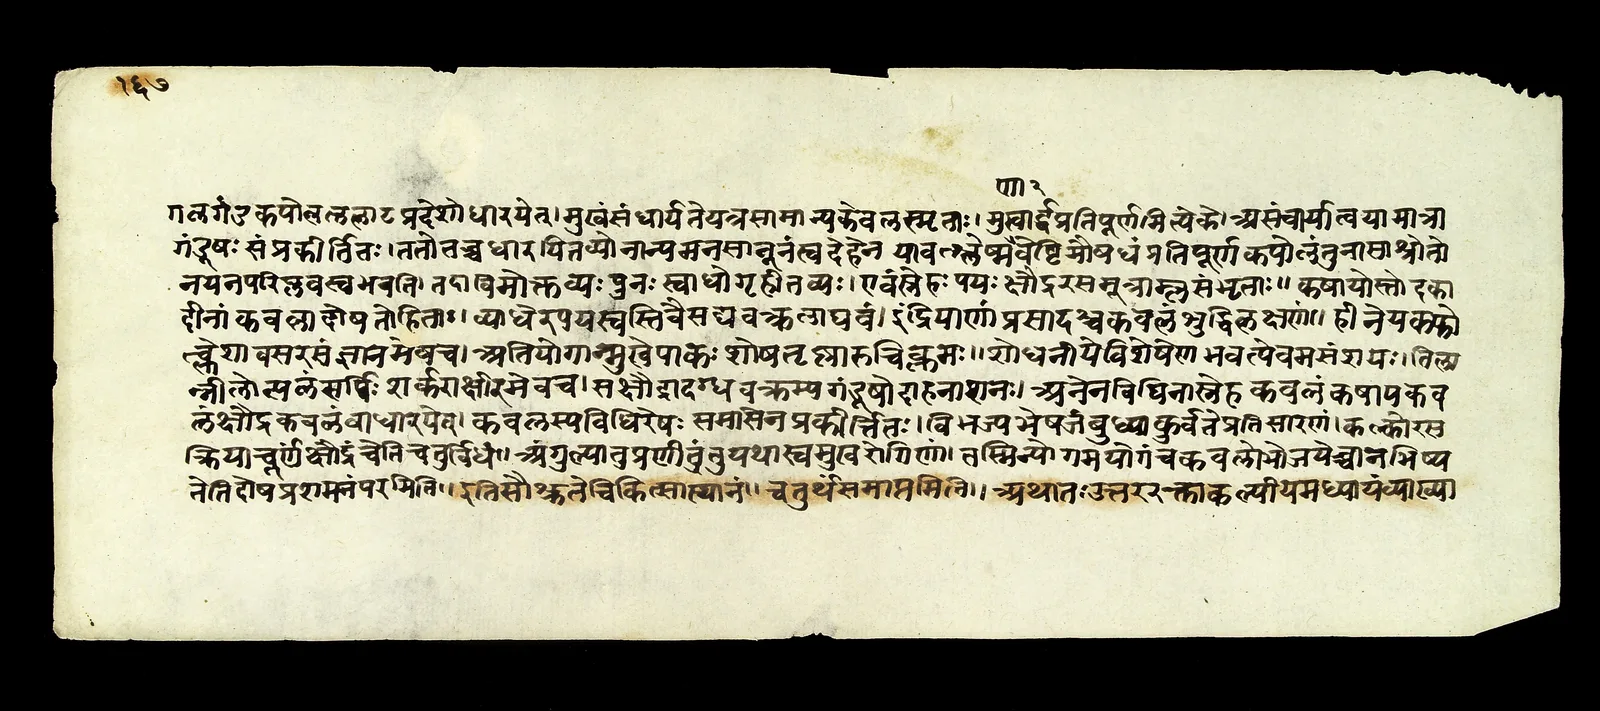 १६७
णा २
गलगंडकपोलललाटप्रदेशोधारयेत। मुखंसंधार्यतेयत्रसामान्यकेवलस्मृताः। मुखार्द्धप्रतिपूर्णमित्येके। असंचार्यात्वयामात्रा
गंडूषः संप्रकीर्तितः। ततोवच्चधारयितव्योनान्यमनसानूनंत्वदेहेन यावत्श्लेष्म औषधंप्रतिपूर्णकपोलंतुनासाश्रोतो
नयनपरिप्लवस्वभवति। तदाविमोक्तव्यः पुनः स्वाधोगृहीतव्यः। एवंस्नेहः पयः क्षौद्ररसमूत्राम्लसंभृताः॥ कषायोस्तोदका
दीनां कवलादोषतोहिताः। व्याधेरपचयस्त्वस्तिवैसद्यवक्त्रलाघवं। इंद्रियाणां प्रसादश्चकवलंशुद्धिलक्षणं॥ हीनेयकफो
त्क्लेशावसरसंज्ञानमेवच। अतियोगान्मुखेपाकः शोषतृष्णारुचिक्लमः॥ शोधनीयेविशेषेणभवत्येवमसंशयः। तिला
न्नीलोत्पलंसर्पिः शर्कराक्षीरमेवच। सक्षौद्रादग्धवक्त्रस्यगंडूषोदाहनाशनः। अनेनविधिनास्नेहकवलंकषायकव
लंक्षौद्रकवलंवाधारयेत्। कवलस्यविधिरेषः समासेनप्रकीर्त्तितः। विभज्यभेषजंबुध्याकुर्वतेप्रतिसारणं। कल्कोरस
क्रियाचूर्णंक्षौद्रंचेतिचतुर्विधं॥ अंगुल्यातुप्रणीतंतुयथास्वमुखरोगिणां। तस्मिन्योगमयोगंचकवलोभोजयेच्चानभिष्य
तेतिदोषप्रशमनंपरमिति॥ इतिसौश्रुतेचिकित्सास्थानं॥ चतुर्थसमाप्तमिति॥ अथातःउत्तररक्ताकल्पीयमध्यायंव्याख्या